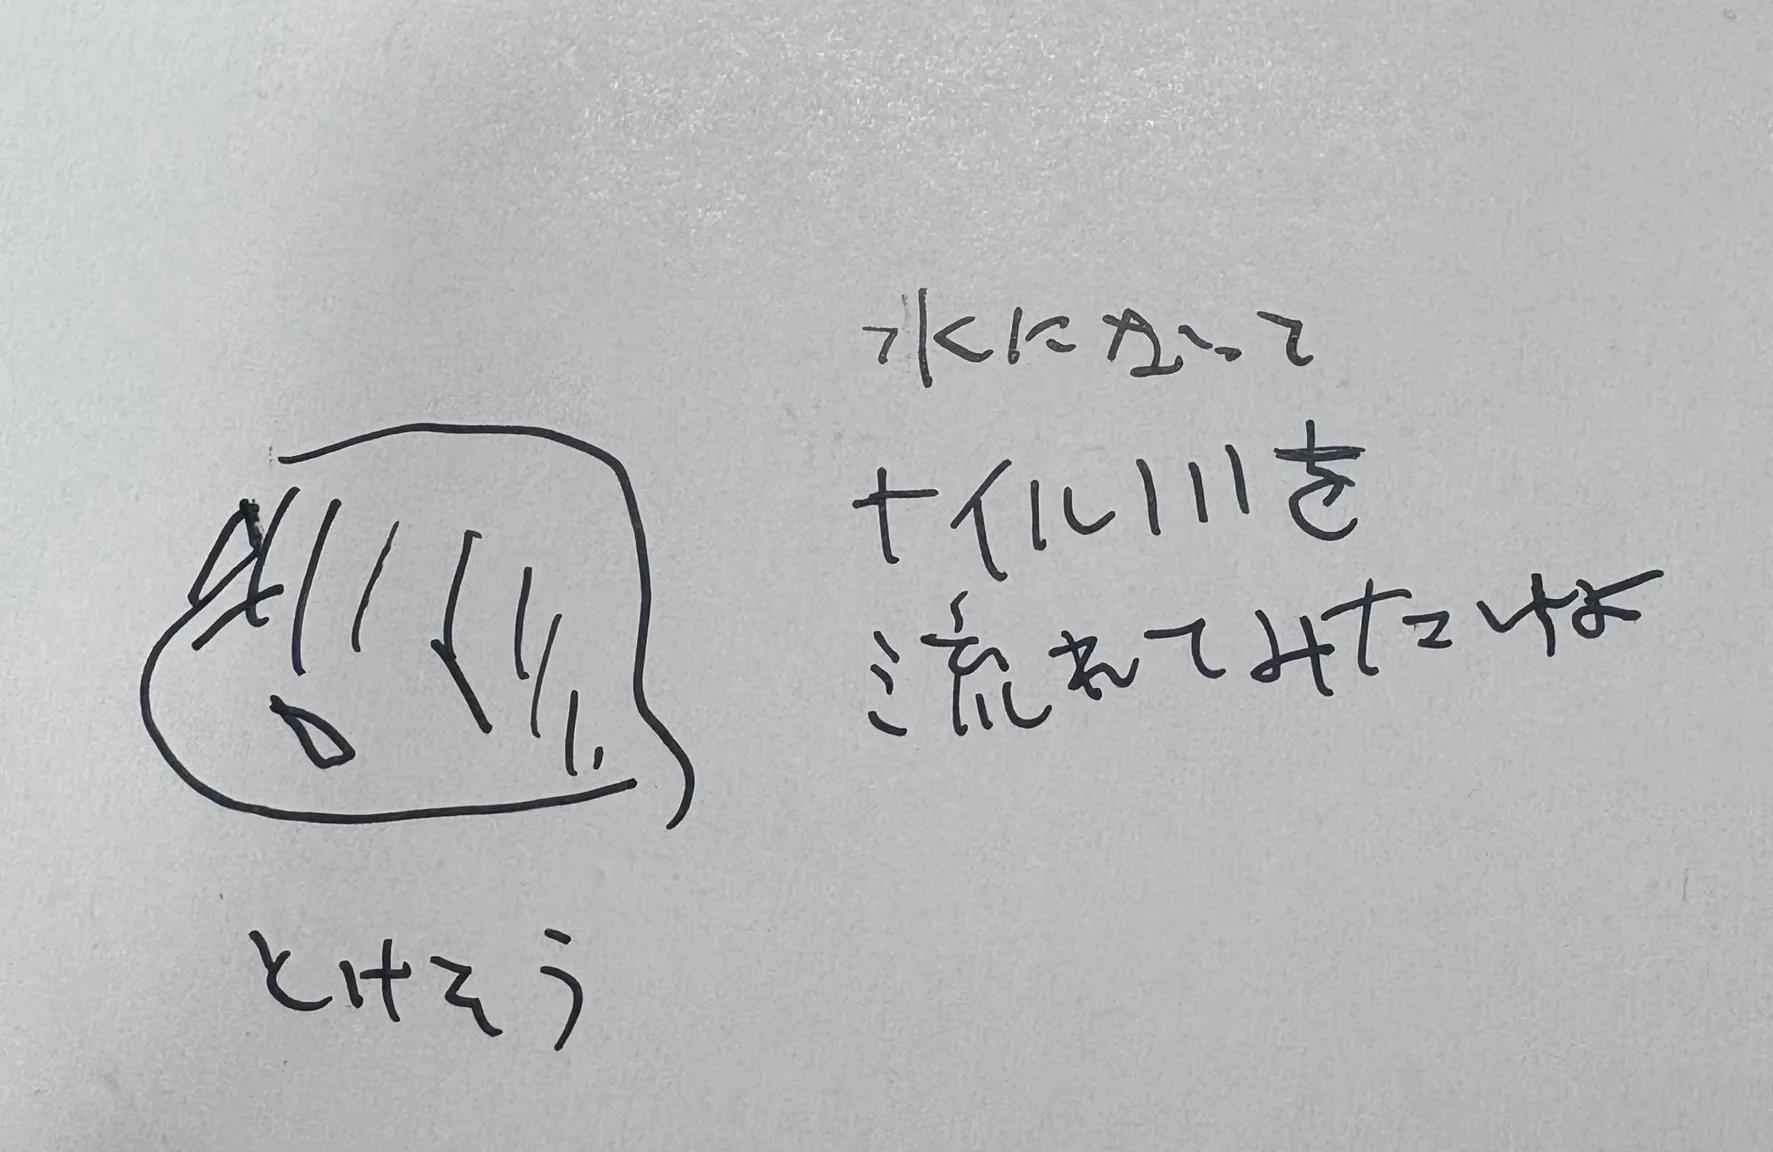 水になって
ナイル川を
流れてみたいよ
とけそう